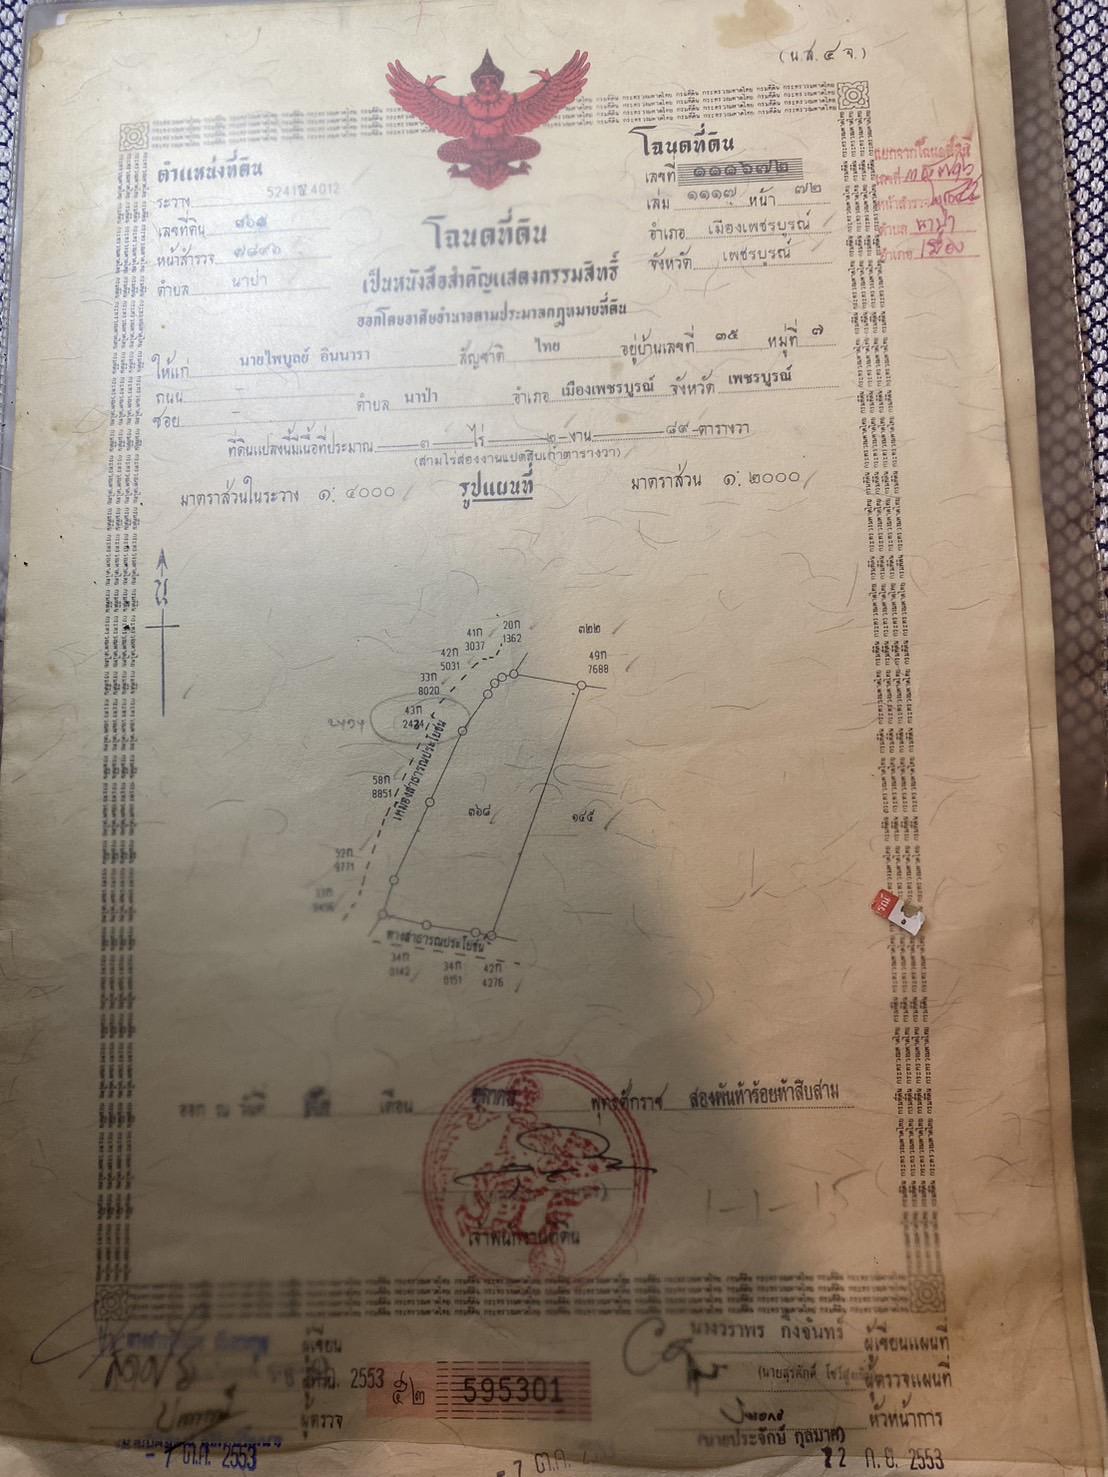 (น.ส. ๔ จ.)
ตำแหน่งที่ดิน
ระวาง 5241 4012
เลขที่ดิน ๓๖๘
หน้าสำรวจ ๗๘๔๖
ตำบล นาป่า
โฉนดที่ดิน
เลขที่ ๑๑๑๖๗๒
เล่ม ๑๑๑๗ หน้า ๗๒
อำเภอ เมืองเพชรบูรณ์
จังหวัด เพชรบูรณ์
แยกจากโฉนดที่ดิน
เลขที่
หน้าสำรวจ
ตำบล นาป่า
อำเภอ เมือง
โฉนดที่ดิน
เป็นหนังสือสำคัญแสดงกรรมสิทธิ์
ออกโดยอาศัยอำนาจตามประมวลกฎหมายที่ดิน
ให้แก่ นายไพบูลย์ อินนารา สัญชาติ ไทย อยู่บ้านเลขที่ ๓๕ หมู่ที่ ๗
ถนน
ซอย ตำบล นาป่า อำเภอ เมืองเพชรบูรณ์ จังหวัด เพชรบูรณ์
ที่ดินแปลงนี้มีเนื้อที่ประมาณ ๓ ไร่ ๒ งาน ๘๙ ตารางวา
(สามไร่สองงานแปดสิบเก้าตารางวา)
มาตราส่วนในระวาง ๑: ๔๐๐๐ รูปแผนที่ มาตราส่วน ๑: ๒๐๐๐
น
20ก
1362
41ก
3037
42ก
5031
33ก
8020
43ก
58ก
8851
๓๒๒
49ก
7688
เหมืองสาธารณประโยชน์
๓๖๘
๑๔๕
52ก
9771
ทางสาธารณประโยชน์
34ก
0142
34ก
0151
42ก
4276
ออก ณ วันที่ เดือน ตุลาคม พุทธศักราช สองพันห้าร้อยห้าสิบสาม
เจ้าพนักงานที่ดิน
1-1-15
ผู้เขียน
2553
ผู้ตรวจ
- 7 ต.ค. 2553
๕๒
595301
- 7 ต.ค.
นางวราพร กิ่งจันทร์ ผู้เขียนแผนที่
ผู้ตรวจแผนที่
(นายประจักษ์ กุลมาศ) หัวหน้าการ
22 ก.ย. 2553